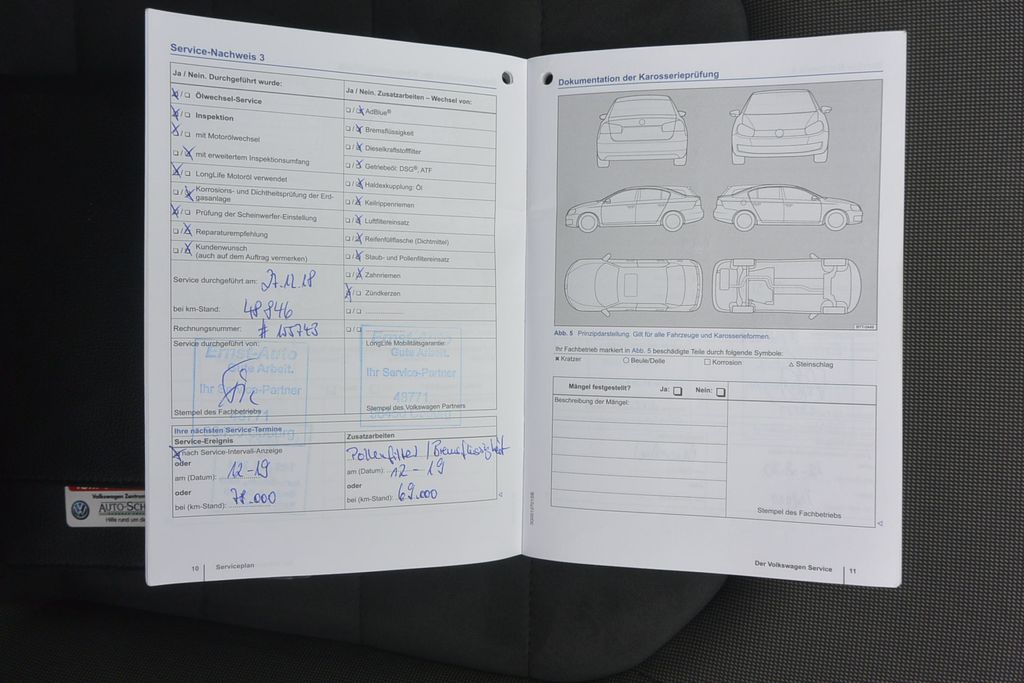 Service-Nachweis 3
Ja / Nein. Durchgeführt wurde:
Ölwechsel-Service
Inspektion
mit Motorölwechsel
mit erweitertem Inspektionsumfang
LongLife Motoröl verwendet
Korrosions- und Dichtheitsprüfung der Erd-
gasanlage
Prüfung der Scheinwerfer-Einstellung
Reparaturempfehlung
Kundenwunsch
(auch auf dem Auftrag vermerken)
Service durchgeführt am: 27.12.18
bei km-Stand: 48946
Rechnungsnummer: # 155743
Service durchgeführt von:
Ernst-Auto
Gute Arbeit.
Ihr Service-Partner
48771
Stempel des Fachbetriebs
Ja / Nein. Zusatzarbeiten – Wechsel von:
AdBlue®
Bremsflüssigkeit
Dieselkraftstofffilter
Getriebeöl: DSG®, ATF
Haldexkupplung: Öl
Keilrippenriemen
Luftfiltereinsatz
Reifenfüllflasche (Dichtmittel)
Staub- und Pollenfiltereinsatz
Zahnriemen
Zündkerzen
LongLife Mobilitätsgarantie:
Ernst-Auto
Gute Arbeit.
Ihr Service-Partner
48771
Stempel des Volkswagen Partners
Ihre nächsten Service-Termine
Service-Ereignis
nach Service-Intervall-Anzeige
oder
am (Datum): 12-19
oder
bei (km-Stand): 78.000
Zusatzarbeiten
Pollenfilter / Bremsflüssigkeit
am (Datum): 12-19
oder
bei (km-Stand): 69.000
10 Serviceplan
Dokumentation der Karosserieprüfung
Abb. 5 Prinzipdarstellung: Gilt für alle Fahrzeuge und Karosserieformen.
Ihr Fachbetrieb markiert in Abb. 5 beschädigte Teile durch folgende Symbole:
× Kratzer ○ Beule/Delle □ Korrosion △ Steinschlag
Mängel festgestellt? Ja: □ Nein: □
Beschreibung der Mängel:
Stempel des Fachbetriebs
Der Volkswagen Service 11
Volkswagen Zentrum
AUTO-SCH
Hilfe rund um di